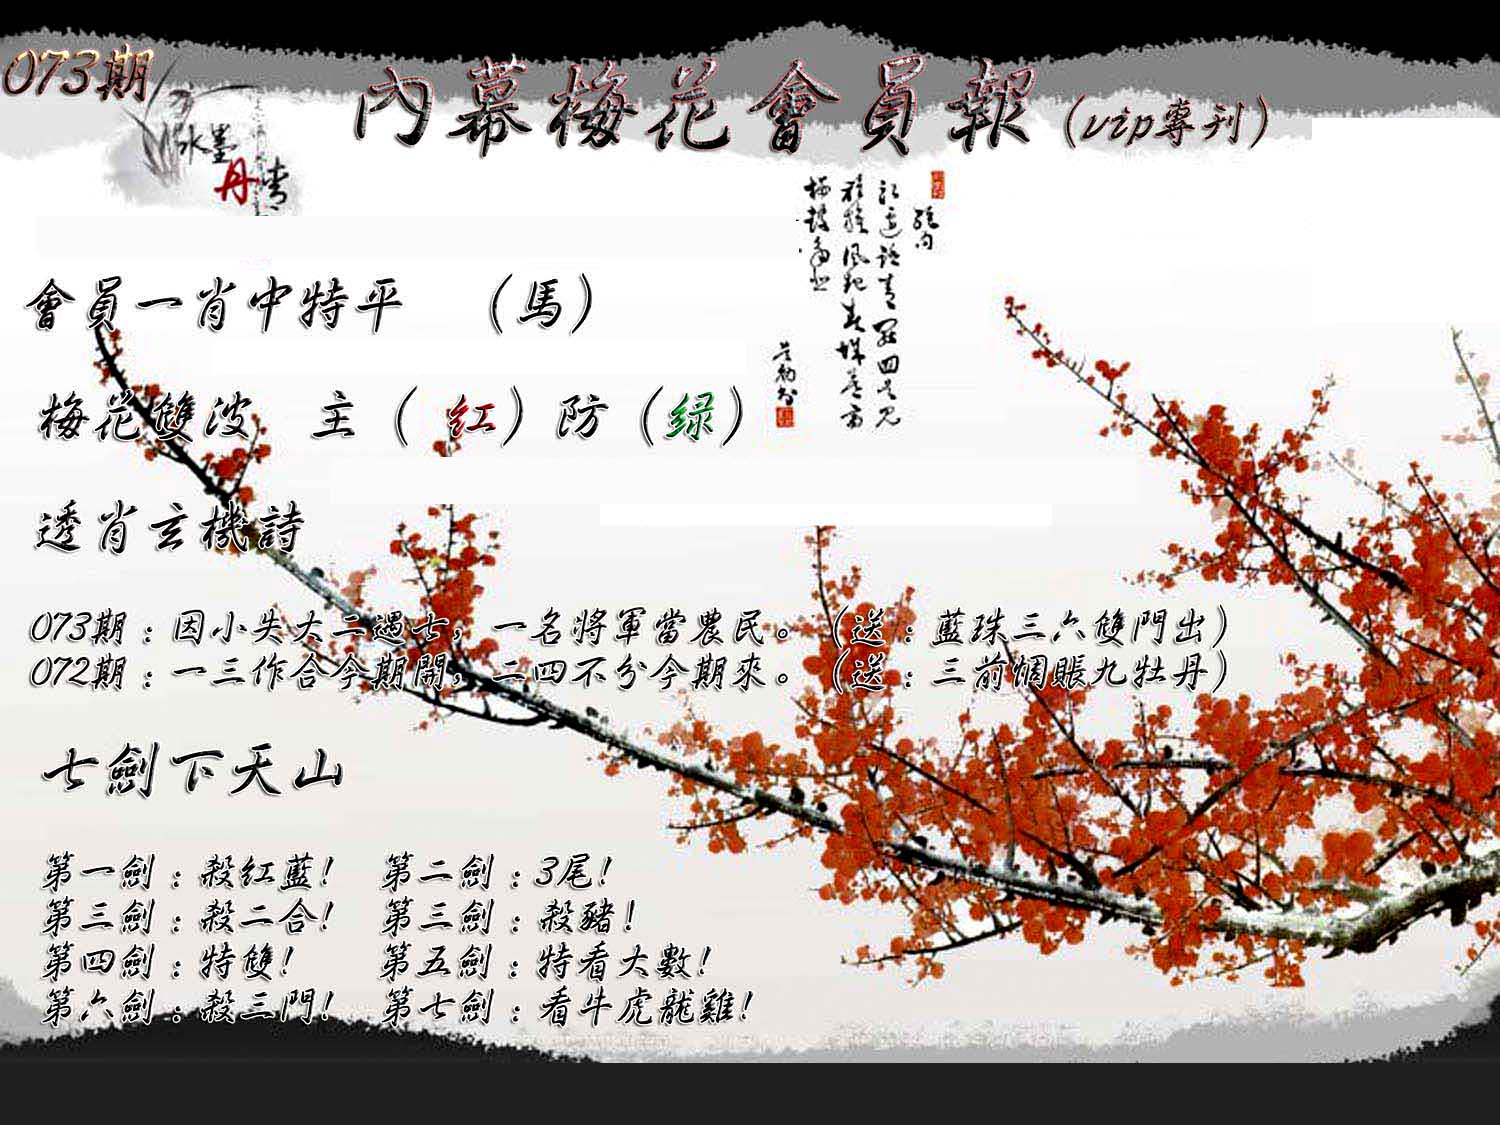 073期
內幕梅花會員報(vip專刊)
水墨
丹青
會員一肖中特平 (馬)
梅花雙波 主(紅)防(绿)
透肖玄機詩
073期:因小失大二遇七,一名將軍當農民。(送:藍珠三六雙門出)
072期:一三作合今期開,二四不分今期來。(送:三前惆賬九牡丹)
七劍下天山
第一劍:殺紅藍! 第二劍:3尾!
第三劍:殺二合! 第三劍:殺豬!
第四劍:特雙! 第五劍:特看大數!
第六劍:殺三門! 第七劍:看牛虎龍雞!